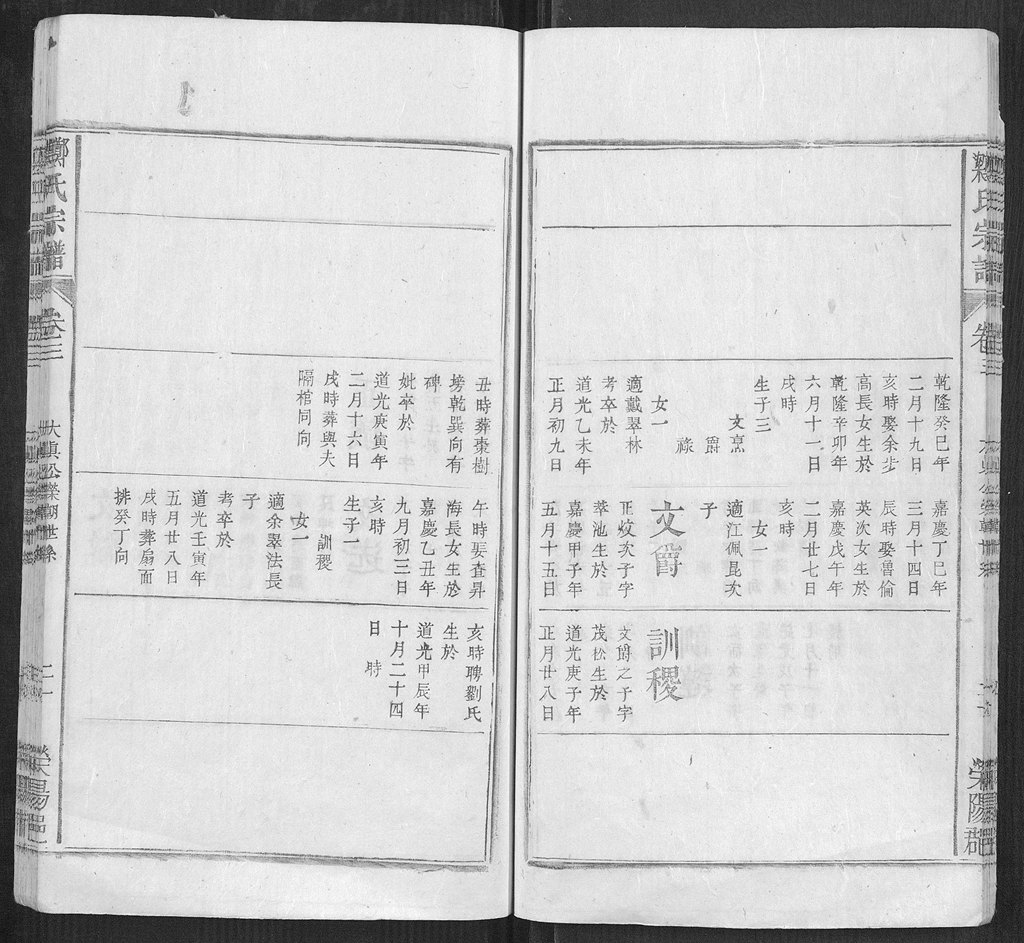 鄭氏宗譜
卷三
乾隆癸巳年
二月十九日
亥時娶余步
高長女生於
乾隆辛卯年
六月十一日
戌時
生子三
文烹
爵
祿
女一
適戴翠林
考卒於
道光乙未年
正月初九日
嘉慶丁巳年
三月十四日
辰時娶曾倫
英次女生於
嘉慶戊午年
二月廿七日
亥時
女一
適江佩昆次
子
文爵
正炆次子字
萃池生於
嘉慶甲子年
五月十五日
訓稷
文爵之子字
茂松生於
道光庚子年
正月廿八日
滎陽郡
丑時葬棗樹
塝乾巽向有
碑
妣卒於
道光庚寅年
二月十六日
戌時葬與夫
隔棺同向
午時娶査昇
海長女生於
嘉慶乙丑年
九月初三日
亥時
生子一
訓稷
女一
適余翠法長
子
考卒於
道光壬寅年
五月廿八日
戌時葬扇面
排癸丁向
亥時聘劉氏
生於
道光甲辰年
十月二十四
日
時
鄭氏宗譜
卷三